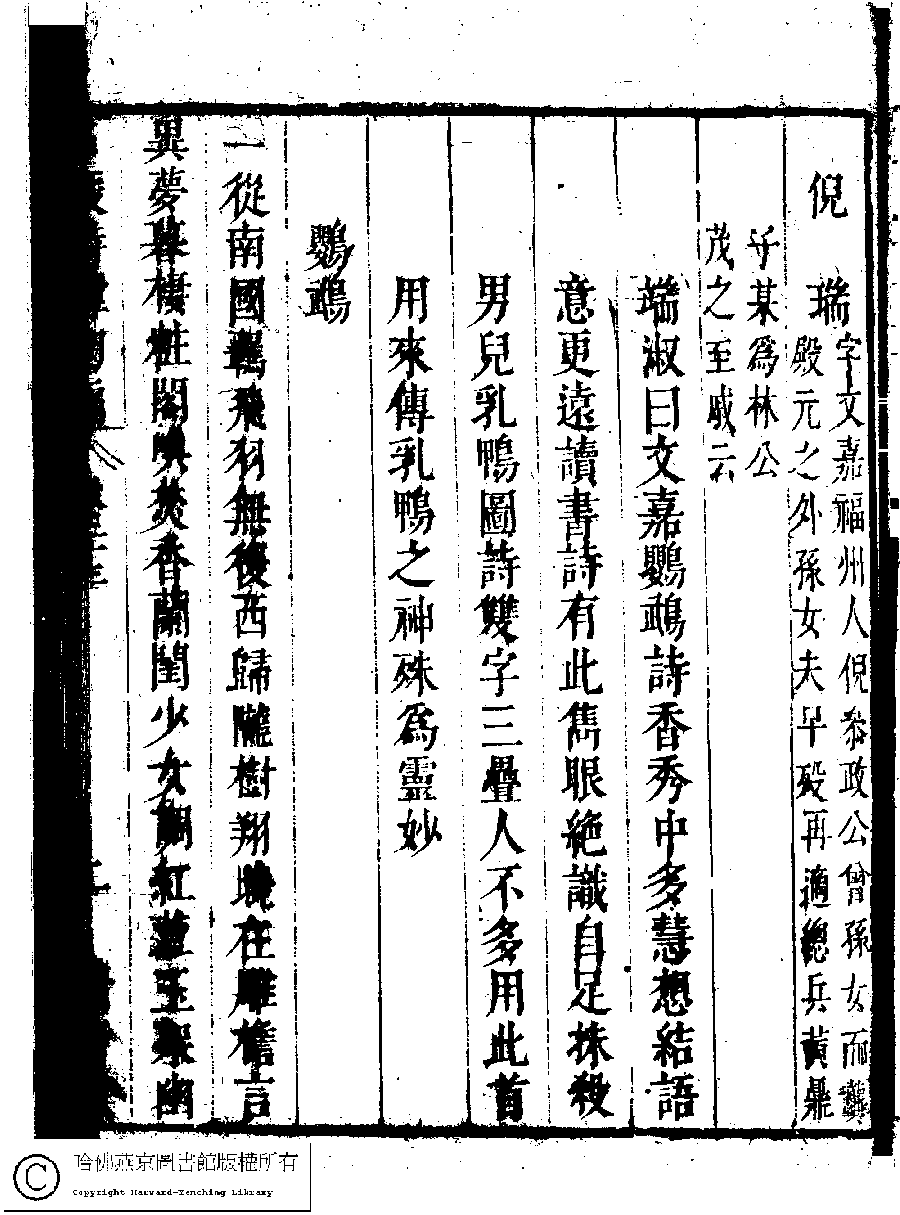 倪瑞
字文嘉福州人倪叅政公曾孫女而龔
殿元之外孫女夫早歿再適總兵黃鼎
子某為林公
茂之至戚云
瑞淑曰文嘉鸚鵡詩香秀中多慧想結語
意更遠讀書詩有此雋眼絶識自足抹殺
男兒乳鴨圖詩雙字三疊人不多用此首
用來傳乳鴨之神殊為靈妙
鸚鵡
一從南國羈飛羽無復西歸隴樹翔曉在雕檐言
異夢暮棲粧閣喚焚香蘭閨少女調紅荳玉架幽
哈佛燕京圖書館版權所有
Copyright Harvard-Yenching Library